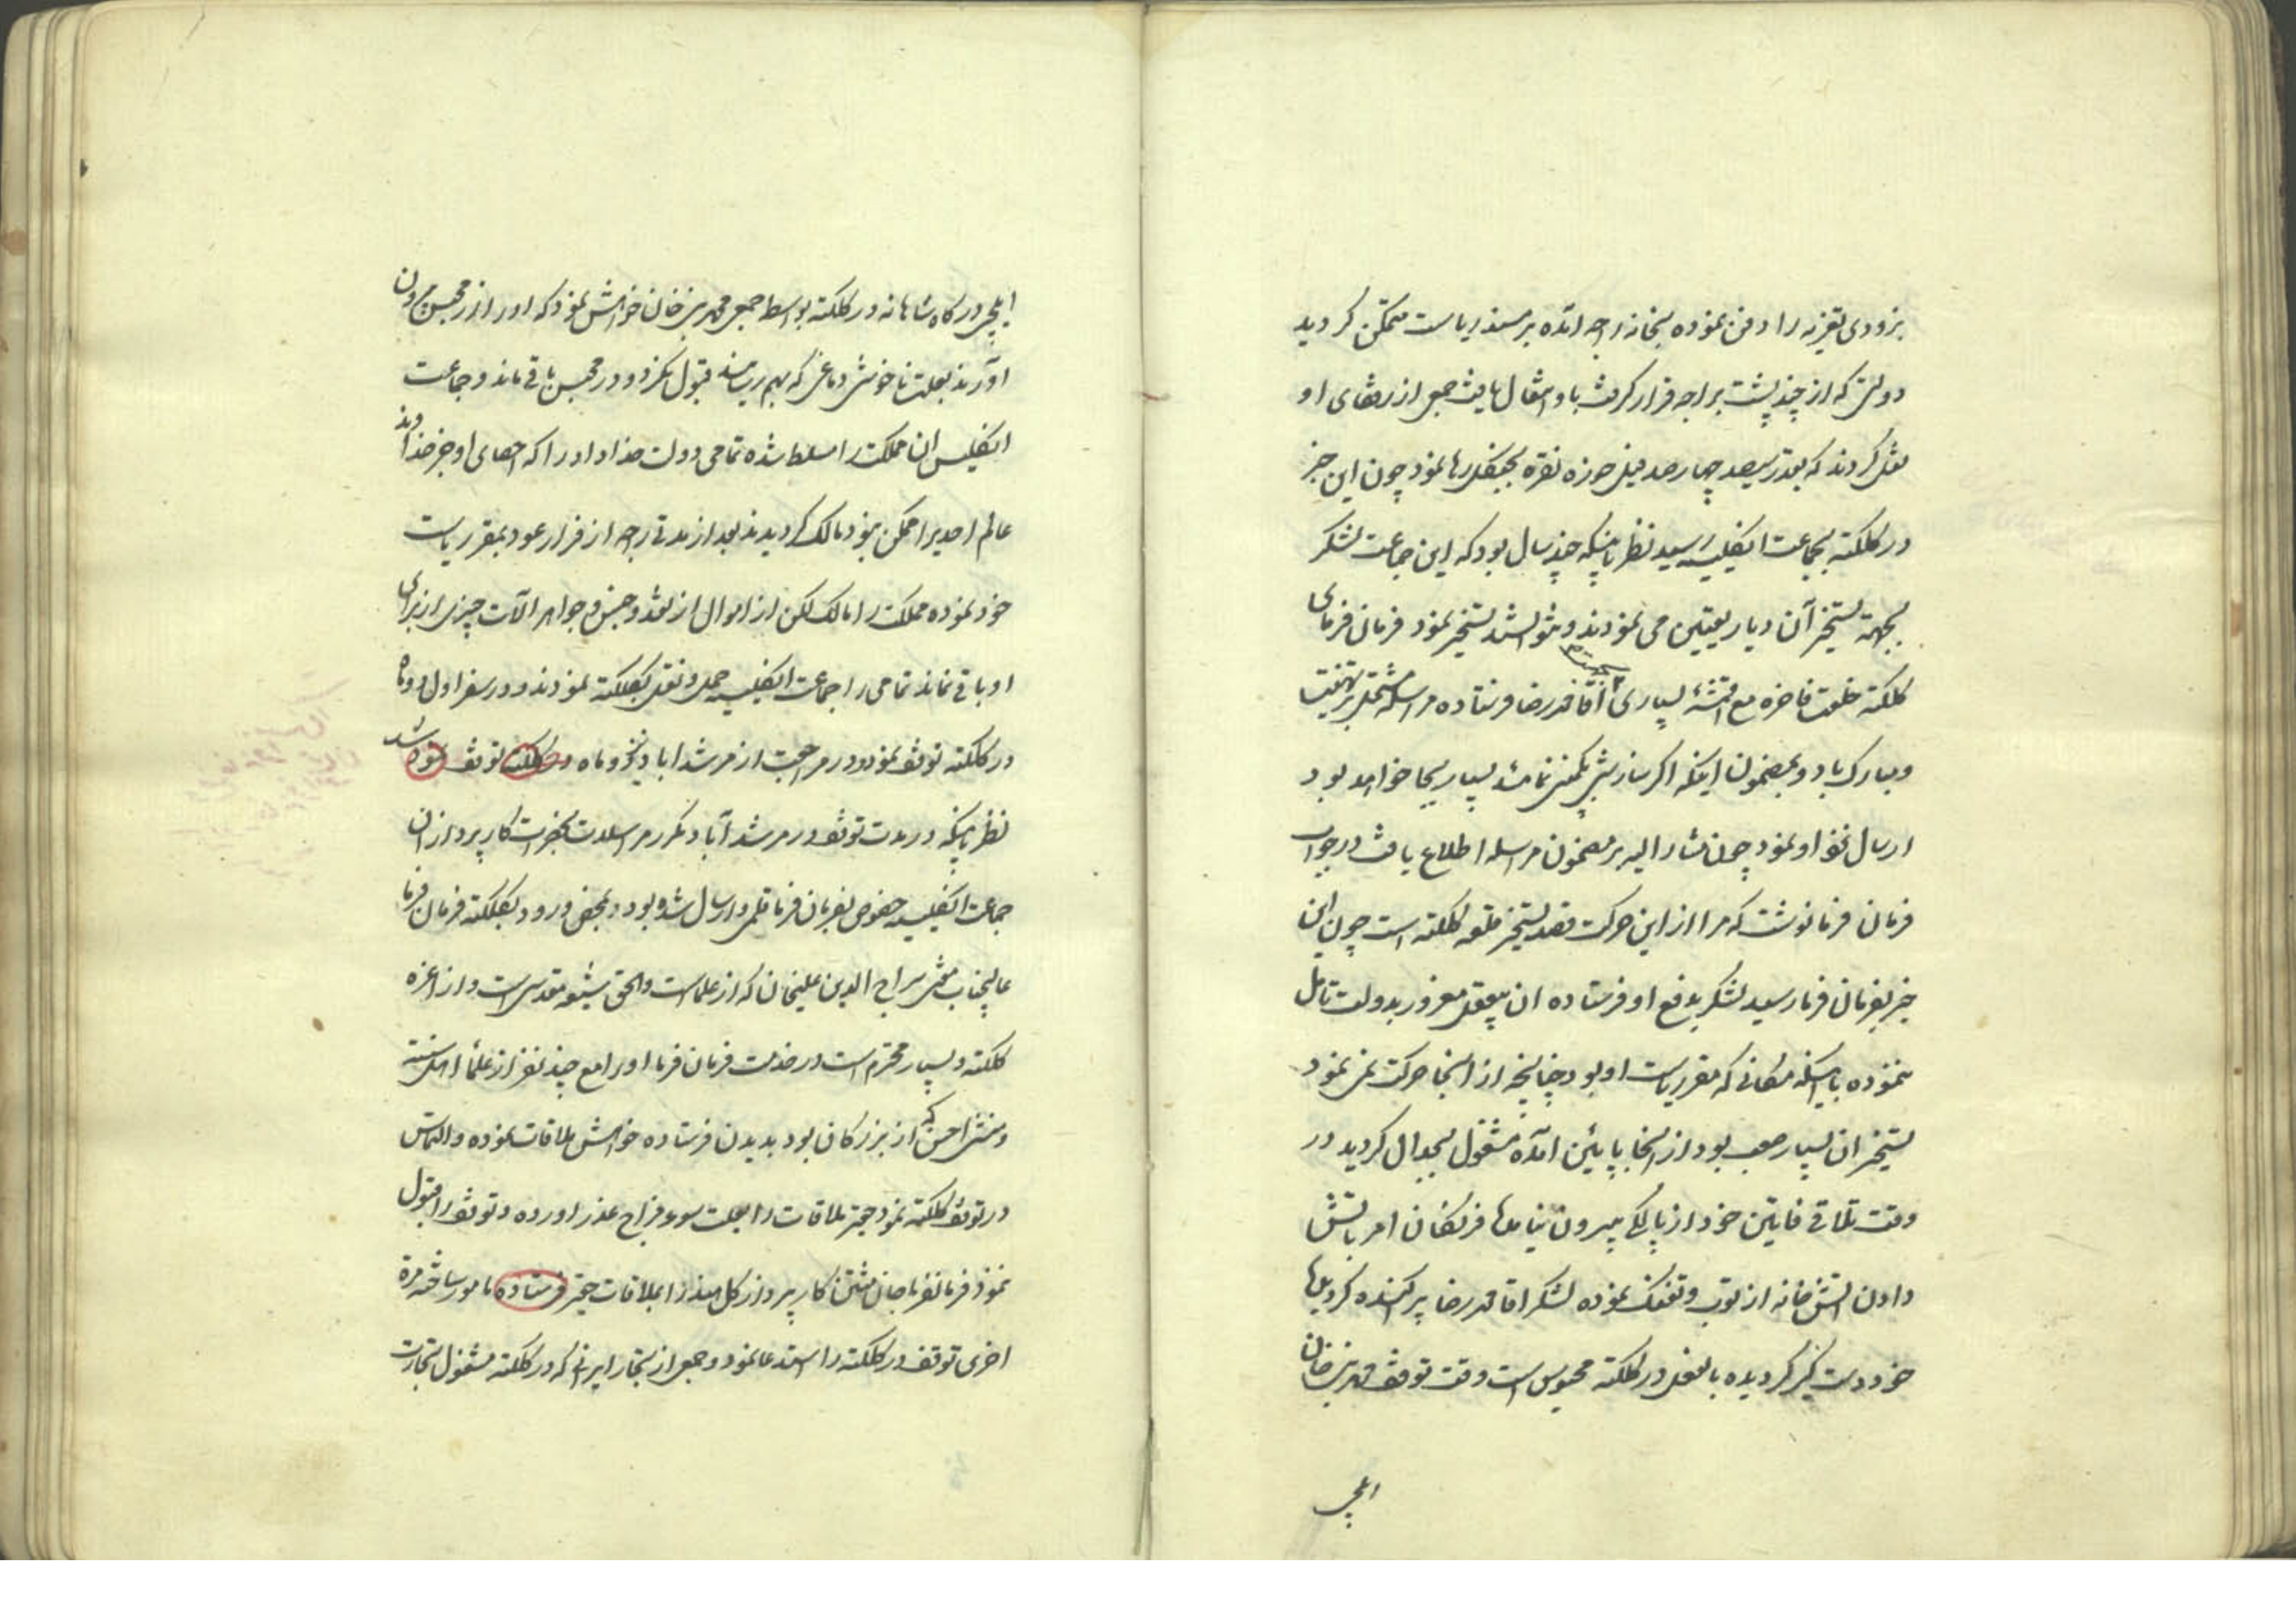 بزودی تعزیه را دفن نموده بخانه راجه آمده بر مسند ریاست متمکن گردید
دولتی که از چند پشت براجه قرار گرفت باو انتقال یافت جمعی از رفقای او
نقل کردند که بقدر سیصد چهارصد فیل حوزه نقره بجیفکی رها نمود چون این خبر
در کلکته بجماعت انگلیسیه رسید نظر باینکه چند سال بود که این جماعت لشکر
بجهة تسخیر آن دیار تعیین می نمودند و نتوانستند تسخیر نمود فرمان فرمای
کلکته خلعت فاخره مع اقمشهٔ بسیاری آقا محمد رضا فرستاده مراسله مشتمل بر تهنیت
و مبارک باد و بمضمون اینکه اگر سازش بکمپنی نماید بسیار بجا خواهد بود
ارسال نزد او نمود چون مشار الیه بر مضمون مراسله اطلاع یافت در جواب
فرمان فرما نوشت که مرا از این حرکت قصد تسخیر قلعه کلکته است چون این
خبر بفرمان فرما رسید لشکر بدفع او فرستاده ان بیعقل مغرور بدولت تامل
ننموده با اینکه مکانی که مقر ریاست او بود چنانچه از انجا حرکت نمی نمود
تسخیر ان بسیار صعب بود از انجا بپایین آمده مشغول بجدال گردید در
وقت تلاقی فایتین خود از پالکی بیرون نیامد فرنگان امر باتش
دادن اتش خانه از توپ و تفنگ نموده لشکر اقا محمد رضا پراکنده گردید
خود دست گیر گردیده بالفعل در کلکته محبوس است وقت توقف محمد نبی خان
ایلچی
ایلچی درگاه شاهانه در کلکته بواسطه جمعی محمد نبی خان خواهش نمود که او را از محبس بیرون
آورند بعلت ناخوشی دماغی که بهم رسانید قبول نکرد و در محبس باقی ماند و جماعت
انگلیس ان مملکت را مسلط شده تمامی دولت خداداد را که احصای او جز خداوند
عالم احدیرا ممکن نبود مالک گردیدند بعد از مدتی راجه از فرار عود بمقر ریاست
خود نموده مملکت را مالک لکن از اموال از نقد و جنس و جواهر الآت چیزی از برای
او باقی نماند تمامی را جماعت انگلیسیه حمل و نقل بکلکته نمودند و در سفر اول دو ماه
در کلکته توقف نمود و در مراجعت از مرشد اباد پنج و ماه در کلکته توقف نمود شد
نظر باینکه در مدت توقف در مرشد آباد مکرر مراسلات بحضرت کارپردازان
جماعت انگلیسیه خصوص بفرمان فرما قلمی و ارسال شده بود و بمحض ورود بکلکته فرمان فرما
عالیجناب مفتی سراج الدین علیخان که از علماست و الحق شیعه مقدسی است و از اعزه
کلکته و بسیار محترم است در خدمت فرمان فرما او را مع چند نفر از علماء اهل سنته
و منشی احسن که از بزرگان بود بدیدن فرستاده خواهش ملاقات نموده و التماس
در توقف کلکته نمود حقیر ملاقات را بعلت سوء مزاج عذر آورده و توقف را قبول
نمود فرمانفرما جان منتن کارپرداز کل هند را بملاقات حقیر فرستاده مامور ساخته مرة
اخری توقف در کلکته را استدعا نمود و جمعی از تجار ایرانی که در کلکته مشغول تجارت